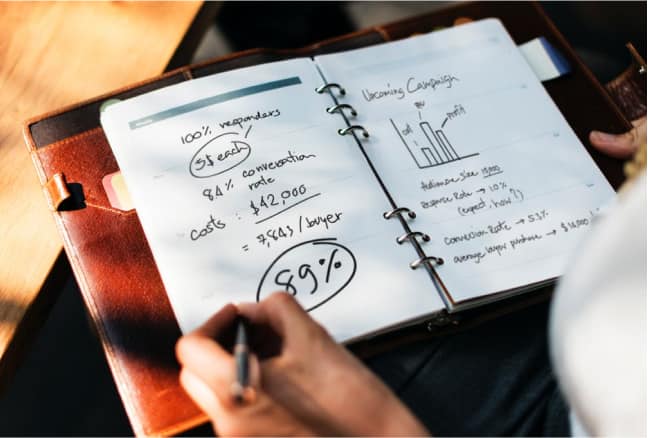 100% responders
5$ each
84% conversation
rate
costs : $42,000
= 7,843/buyer
89%
Upcoming Campaign
profit
Response Rate → 10%
(expect : how?)
conversion Rate → 53%
average buyer purchase →